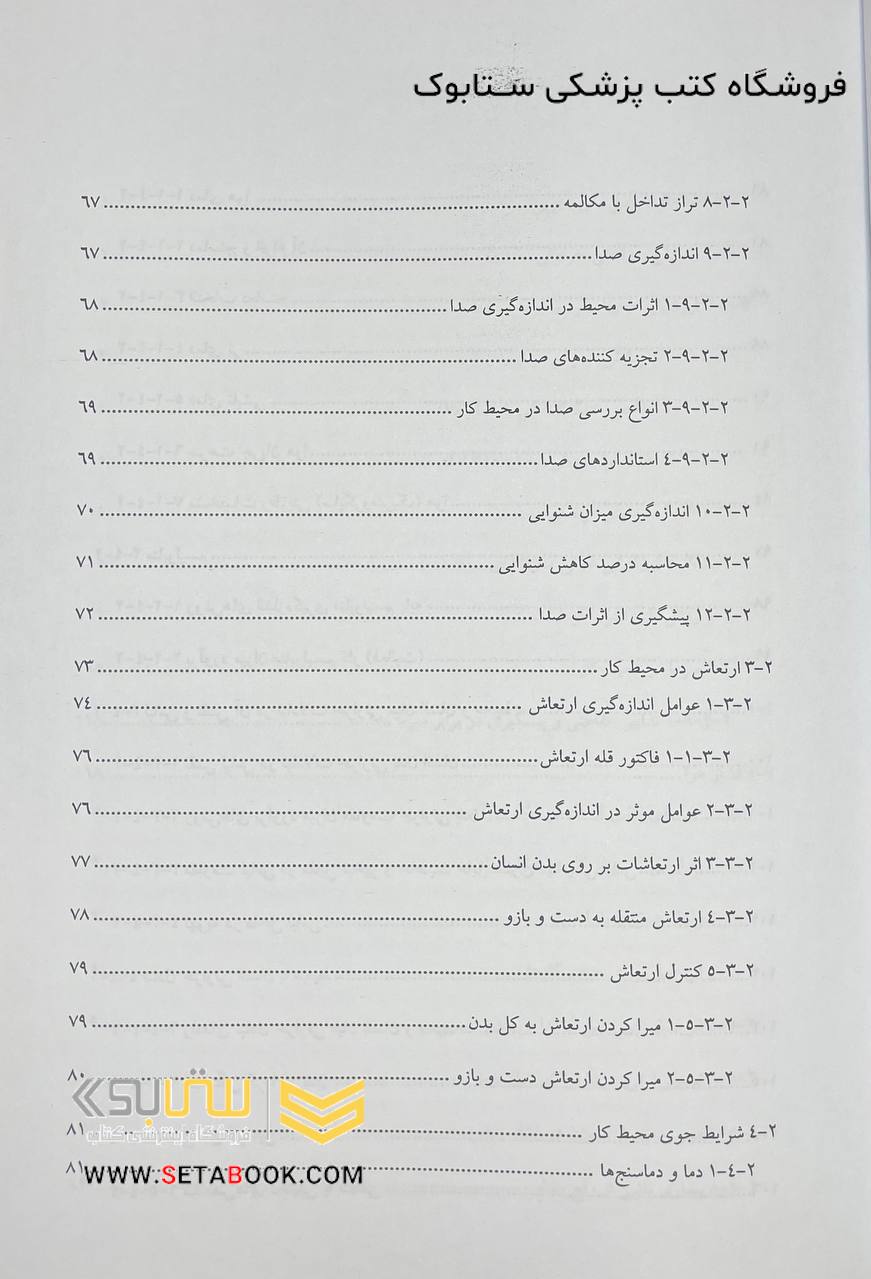 فروشگاه کتب پزشکی ستابوک
۲-۲-۸ تراز تداخل با مکالمه ........ ٦٧
۲-۲-۹ اندازه‌گیری صدا ........ ٦٧
۲-۲-۹-۱ اثرات محیط در اندازه‌گیری صدا ........ ٦٨
۲-۲-۹-۲ تجزیه کننده‌های صدا ........ ٦٨
۲-۲-۹-۳ انواع بررسی صدا در محیط کار ........ ٦٩
۲-۲-۹-٤ استانداردهای صدا ........ ٦٩
۲-۲-۱۰ اندازه‌گیری میزان شنوایی ........ ۷۰
۲-۲-۱۱ محاسبه درصد کاهش شنوایی ........ ۷۱
۲-۲-۱۲ پیشگیری از اثرات صدا ........ ۷۲
۲-۳ ارتعاش در محیط کار ........ ۷۳
۲-۳-۱ عوامل اندازه‌گیری ارتعاش ........ ۷٤
۲-۳-۱-۱ فاکتور قله ارتعاش ........ ۷٦
۲-۳-۲ عوامل موثر در اندازه‌گیری ارتعاش ........ ۷٦
۲-۳-۳ اثر ارتعاشات بر روی بدن انسان ........ ۷۷
۲-۳-٤ ارتعاش منتقله به دست و بازو ........ ۷۸
۲-۳-٥ کنترل ارتعاش ........ ۷۹
۲-۳-٥-۱ میرا کردن ارتعاش به کل بدن ........ ۷۹
۲-۳-٥-۲ میرا کردن ارتعاش دست و بازو ........ ۸۰
۲-٤ شرایط جوی محیط کار ........ ۸۱
۲-٤-۱ دما و دماسنج‌ها ........ ۸۱
ستابوک
فروشگاه اینترنتی کتاب
WWW.SETABOOK.COM